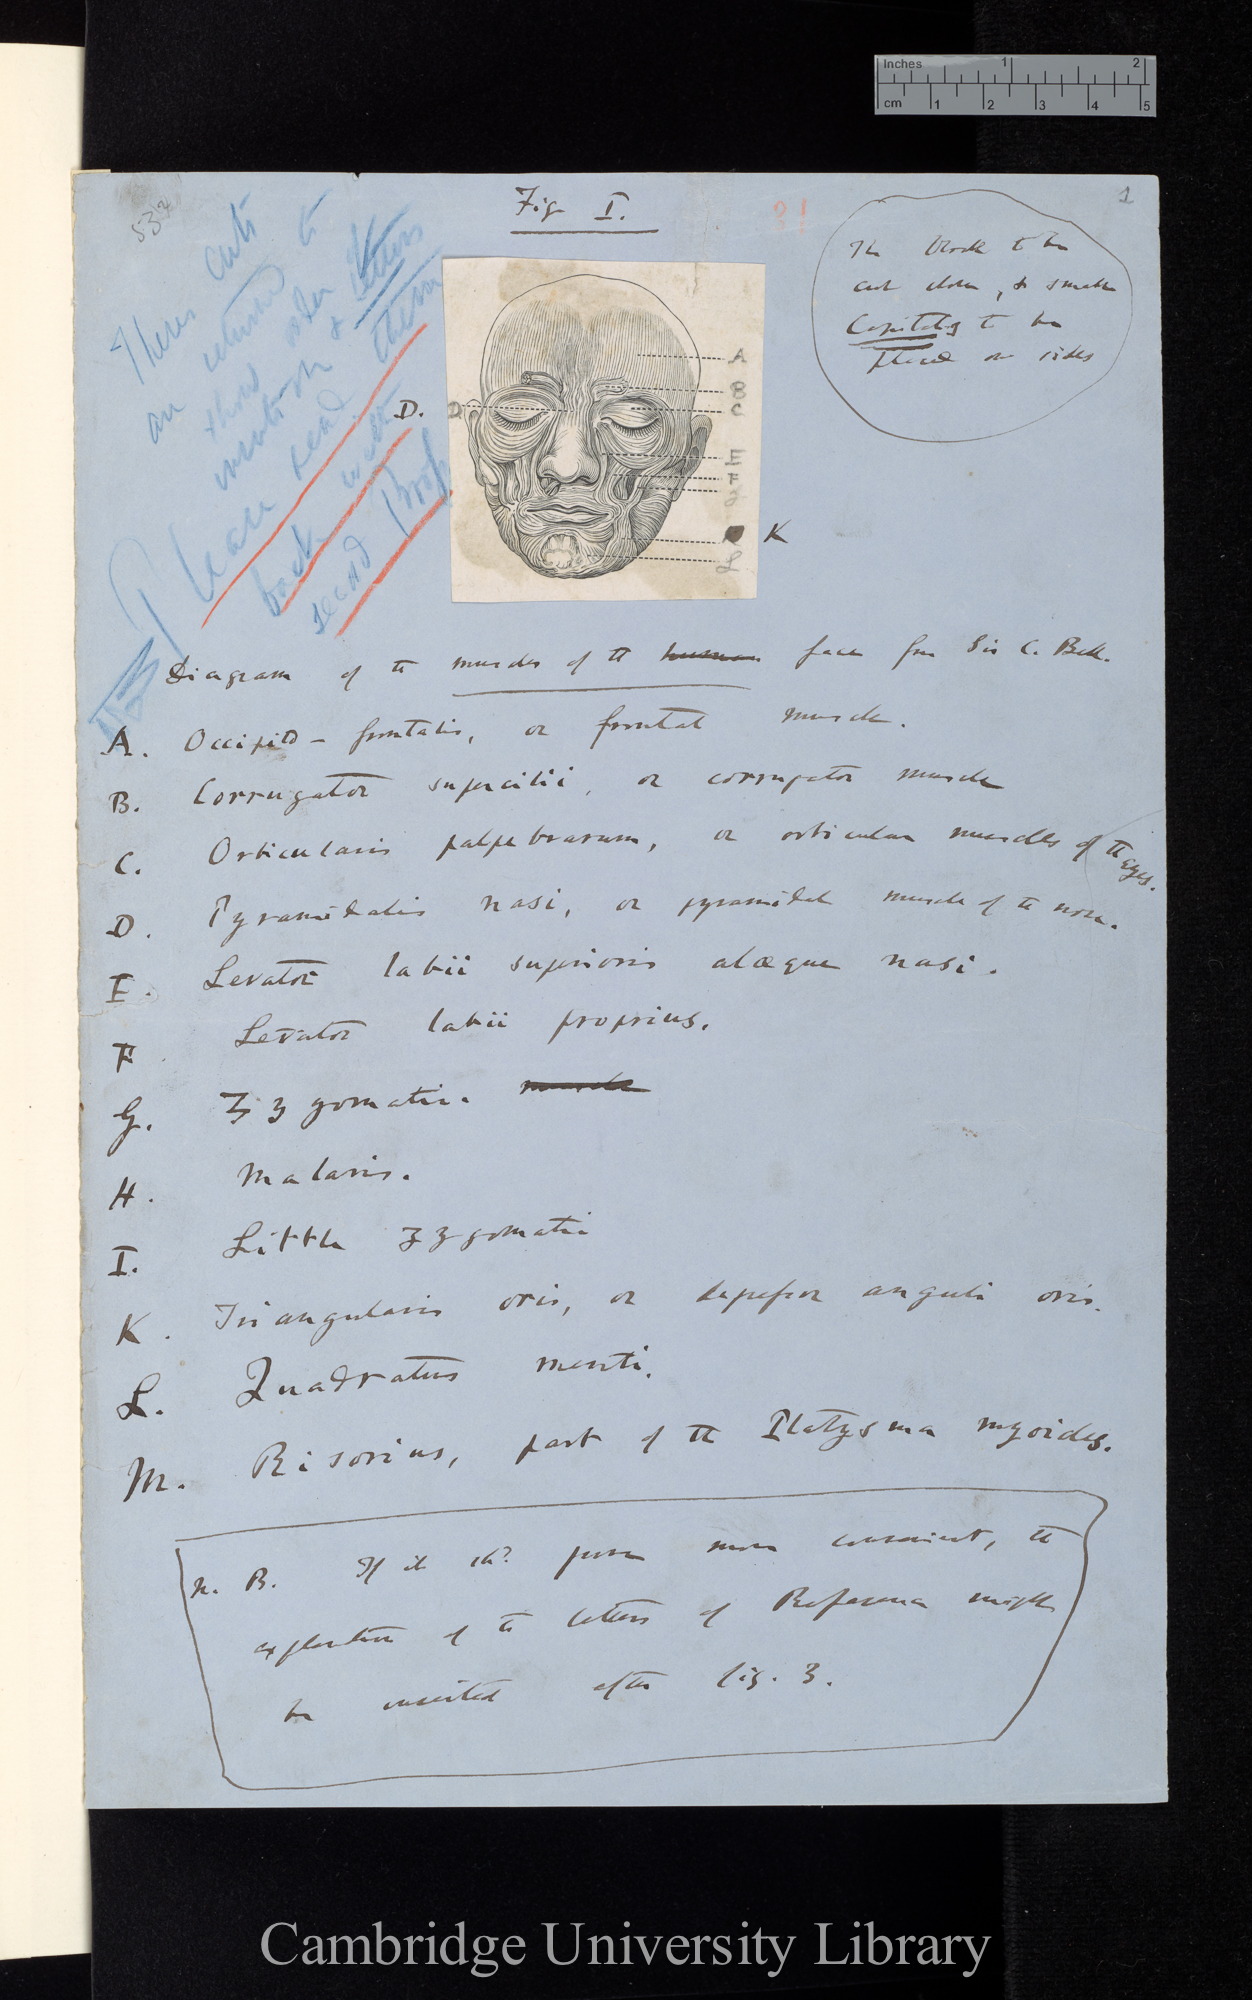 Inches 1 2
cm 1 2 3 4 5
537
1
Fig I.
These cuts
are returned to
show order of
insertion & letters
Please read them
back with
second Proof
The block to be
cut down, & small
Capitals to be
placed on sides
A
B
C
D. D
E
F
K
L
Diagram of the muscles of the human face from Sir C. Bell.
A. Occipito-frontalis, or frontal muscle.
B. Corrugator supercilii, or corrugator muscle
C. Orbicularis palpebrarum, or orbicular muscles of the eyes.
D. Pyramidalis nasi, or pyramidal muscle of the nose.
E. Levator labii superioris alæque nasi.
F Levator labii proprius.
G. Zygomatic. muscle
H. Malaris.
I. Little zygomatic
K. Triangularis oris, or depressor anguli oris.
L. Quadratus menti.
M. Risorius, part of the Platysma myoides.
N. B. If it shd prove more convenient, the
explanation of the letters of Reference might
be inserted after fig. 3.
Cambridge University Library